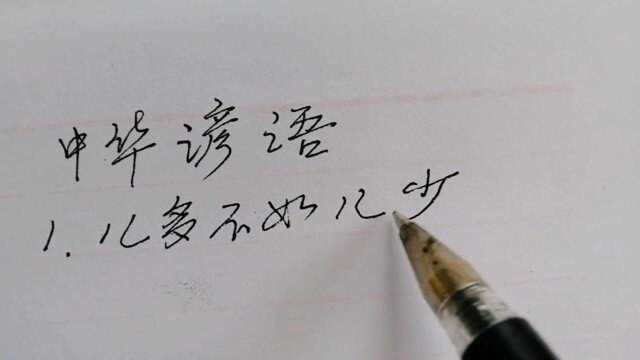 中华谚语
1.儿多不如儿少